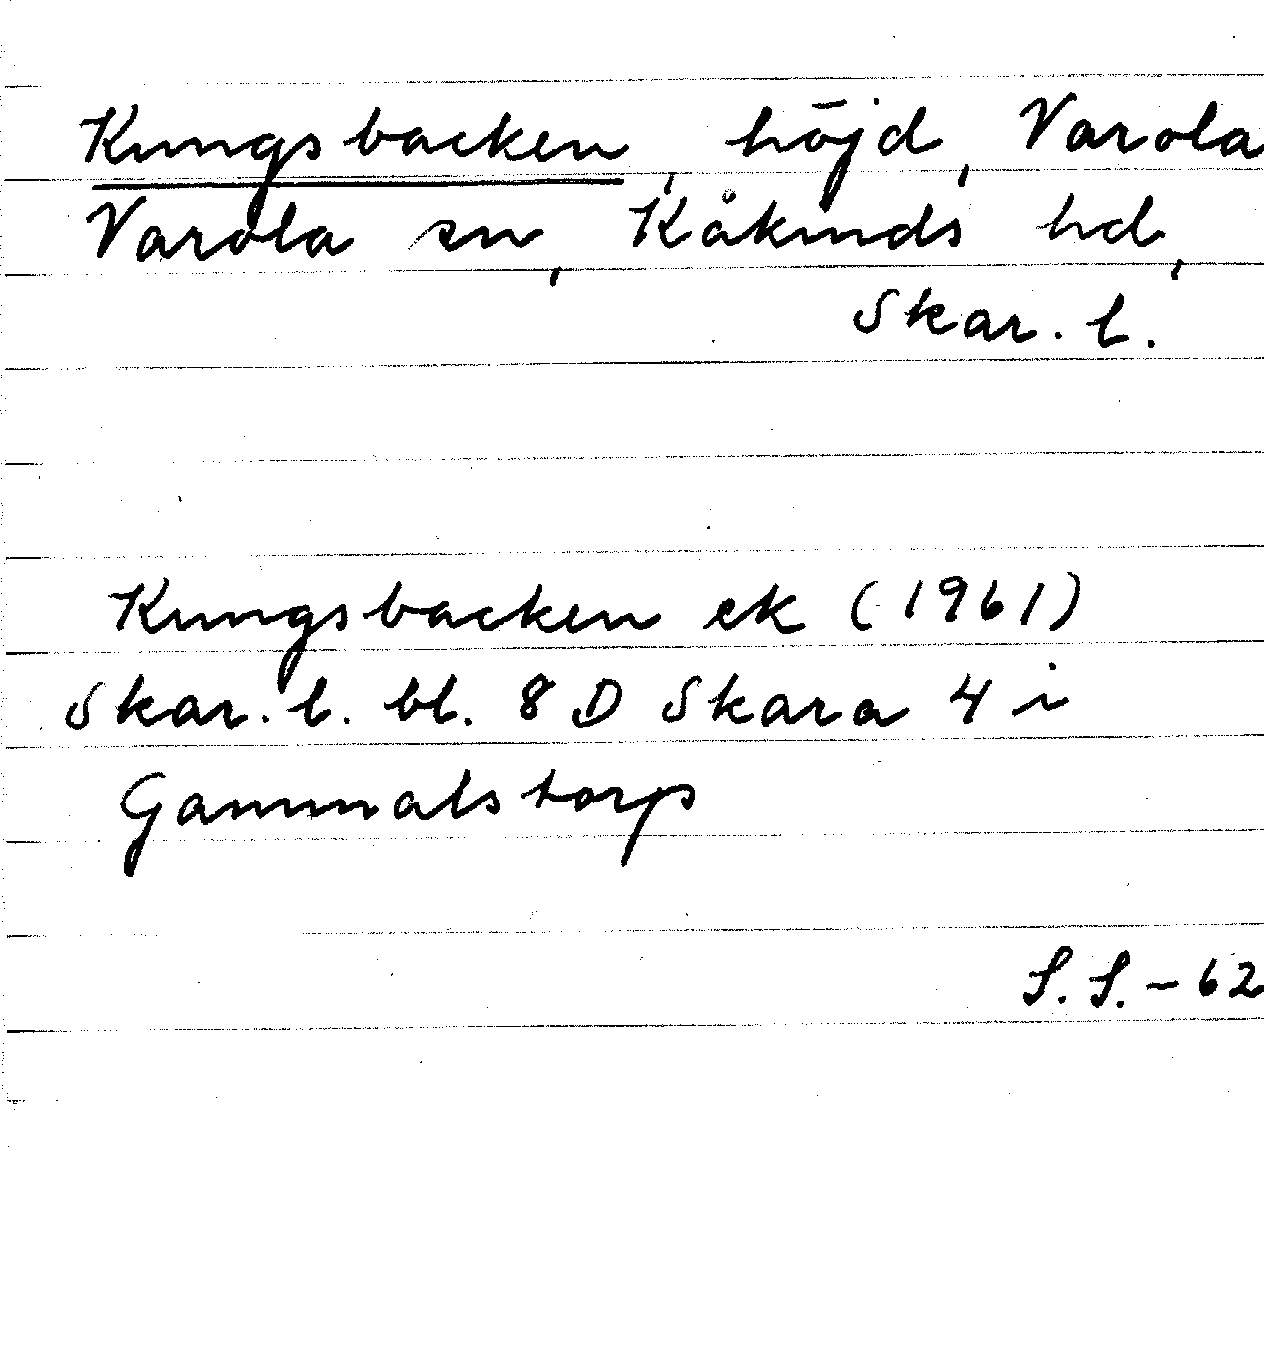 Kungsbacken, höjd, Varola
Varola sn, Kåkinds hd,
Skar. l.
Kungsbacken ek (1961)
Skar. l. bl. 8 D Skara 4 i
Gammalstorp
S. S. - 62